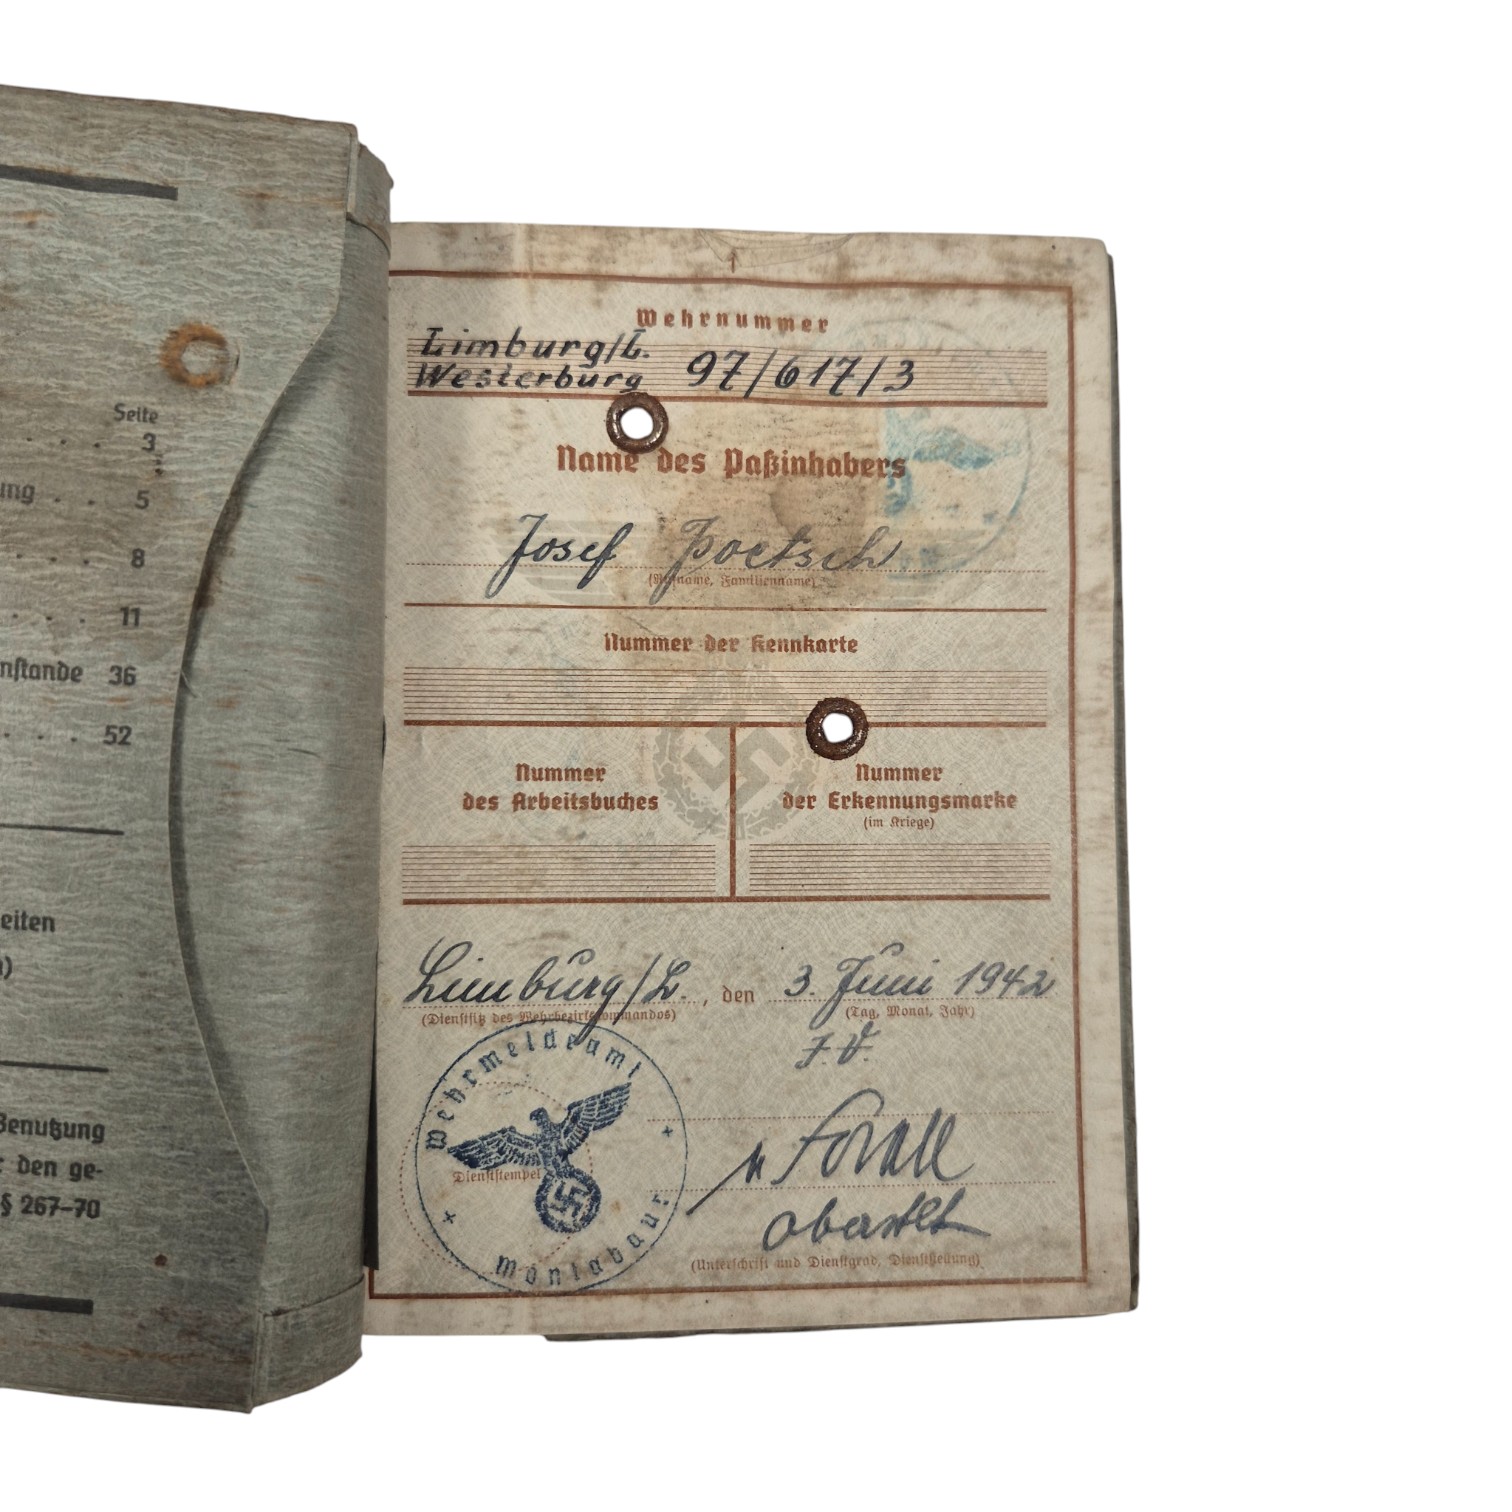 Seite
3
ung . . 5
8
11
nstande 36
52
eiten
Benutzung
den ge-
§ 267–70
Wehrnummer
Limburg/L.
Westerburg 97/617/3
Name des Paßinhabers
Josef Poetsch
(Rufname, Familienname)
Nummer der Kennkarte
Nummer
des Arbeitsbuches
Nummer
der Erkennungsmarke
(im Kriege)
Limburg/L. , den 3. Juni 1942
(Dienstsitz des Wehrbezirkskommandos)
(Tag, Monat, Jahr)
J.V.
Wehrmeldeamt
Dienststempel
Montabaur
Oberstlt
(Unterschrift und Dienstgrad, Dienststellung)